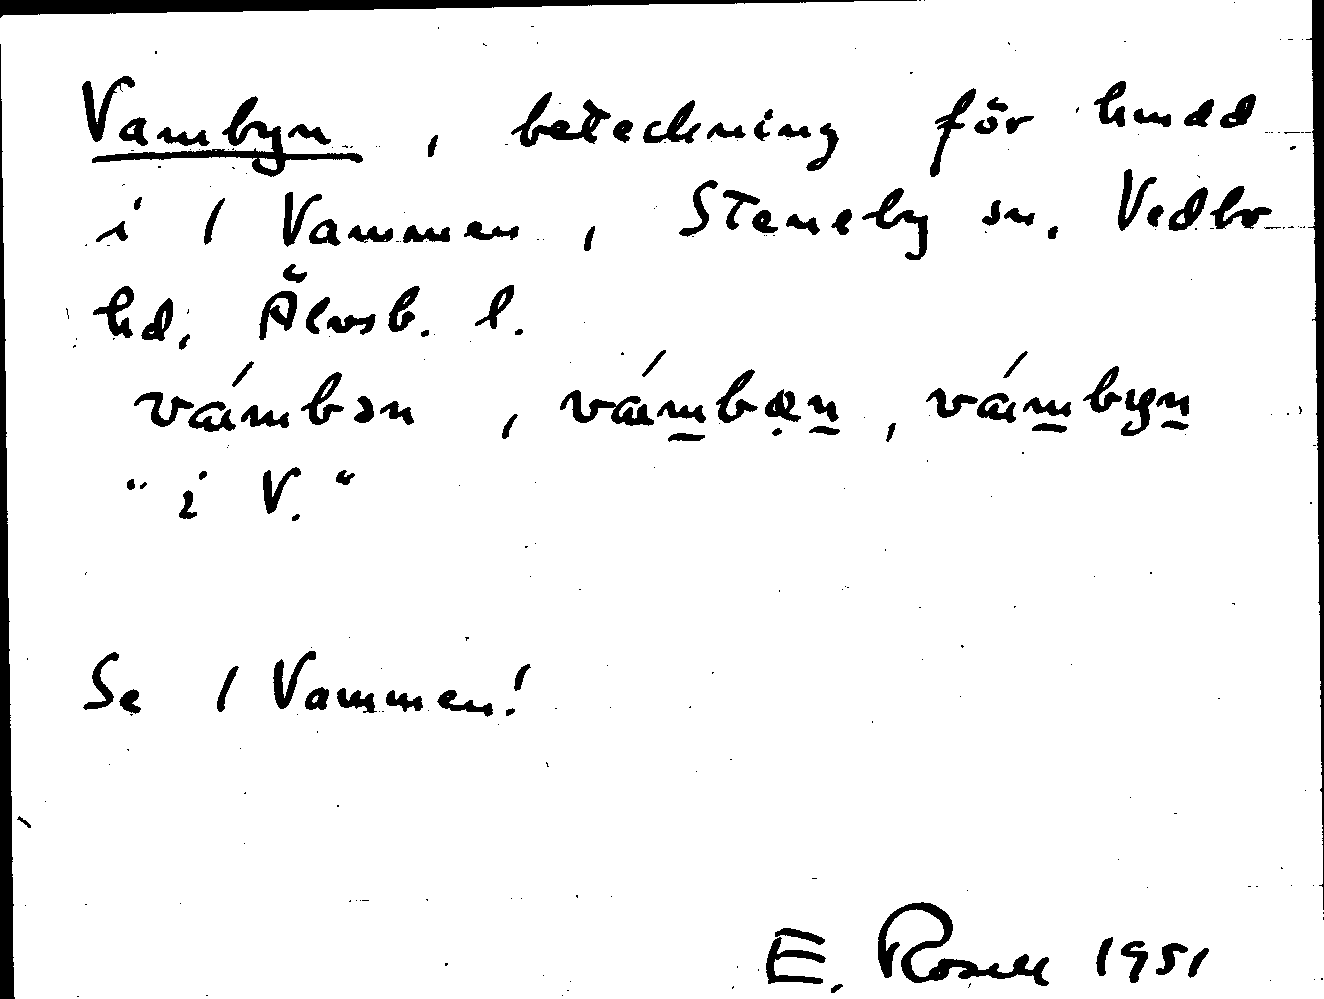 Vambyn, beteckning för hmdd
i 1 Vammen, Steneby sn, Vedbo
hd, Älvsb. l.
vámbən, vám̲bæ̣n̲, vám̲byn̲
"i V."
Se 1 Vammen!
E. Rosell 1951